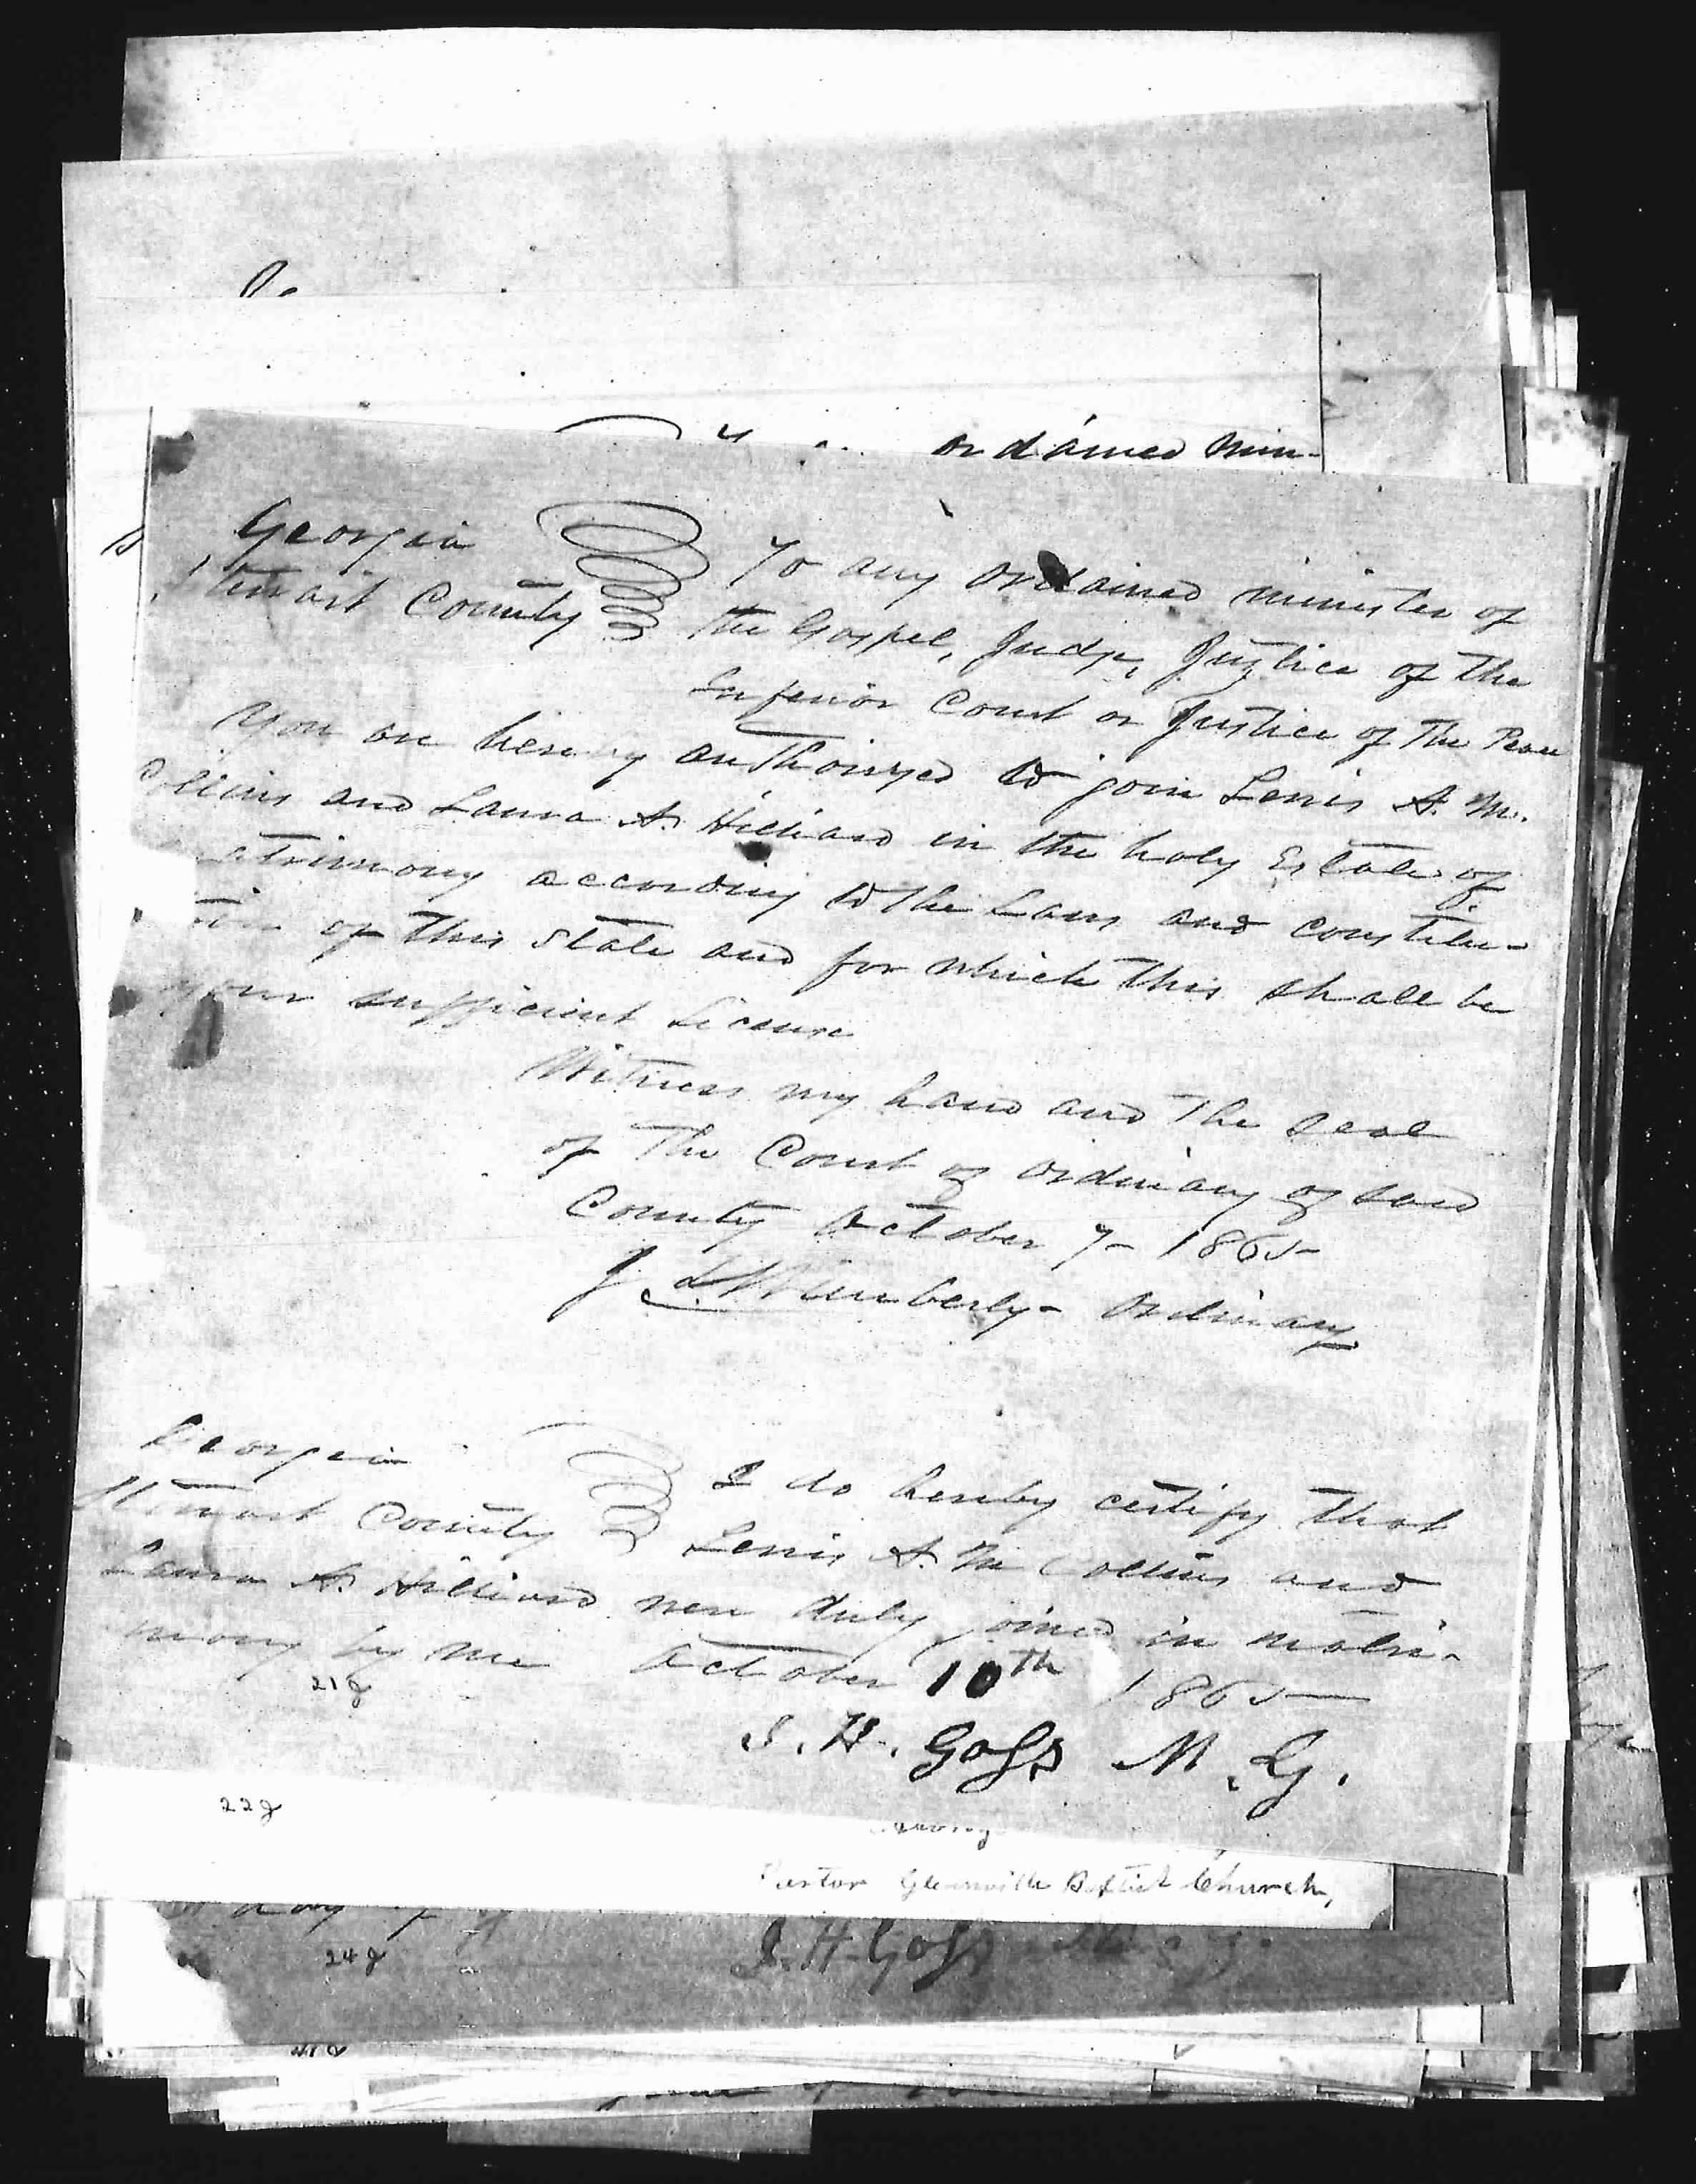 ordained Min-
Georgia To any ordained minister of
Stewart County the Gospel, Judge, Justice of the
Inferior Court or Justice of The Peace
You are hereby authorized to join Lewis A. M.
Collins and Laura A. Hilliard in the holy Estate of
matrimony according to the Laws and constitu-
tion of this State and for which this shall be
your sufficient License
Witness my hand and The Seal
of The Court of ordinary of Said
County October 7- 1865-
J. L. Wimberly- Ordinary
Georgia I do hereby certify That
Stewart County Lewis A. M Collins and
Laura A. Hilliard were duly joined in matri-
mony by me October 10th 1865
21g
J. H. Goss M. G.
22g
Pastor Glennville Baptist Church,
day of
J. H. Goss M. G.
24g